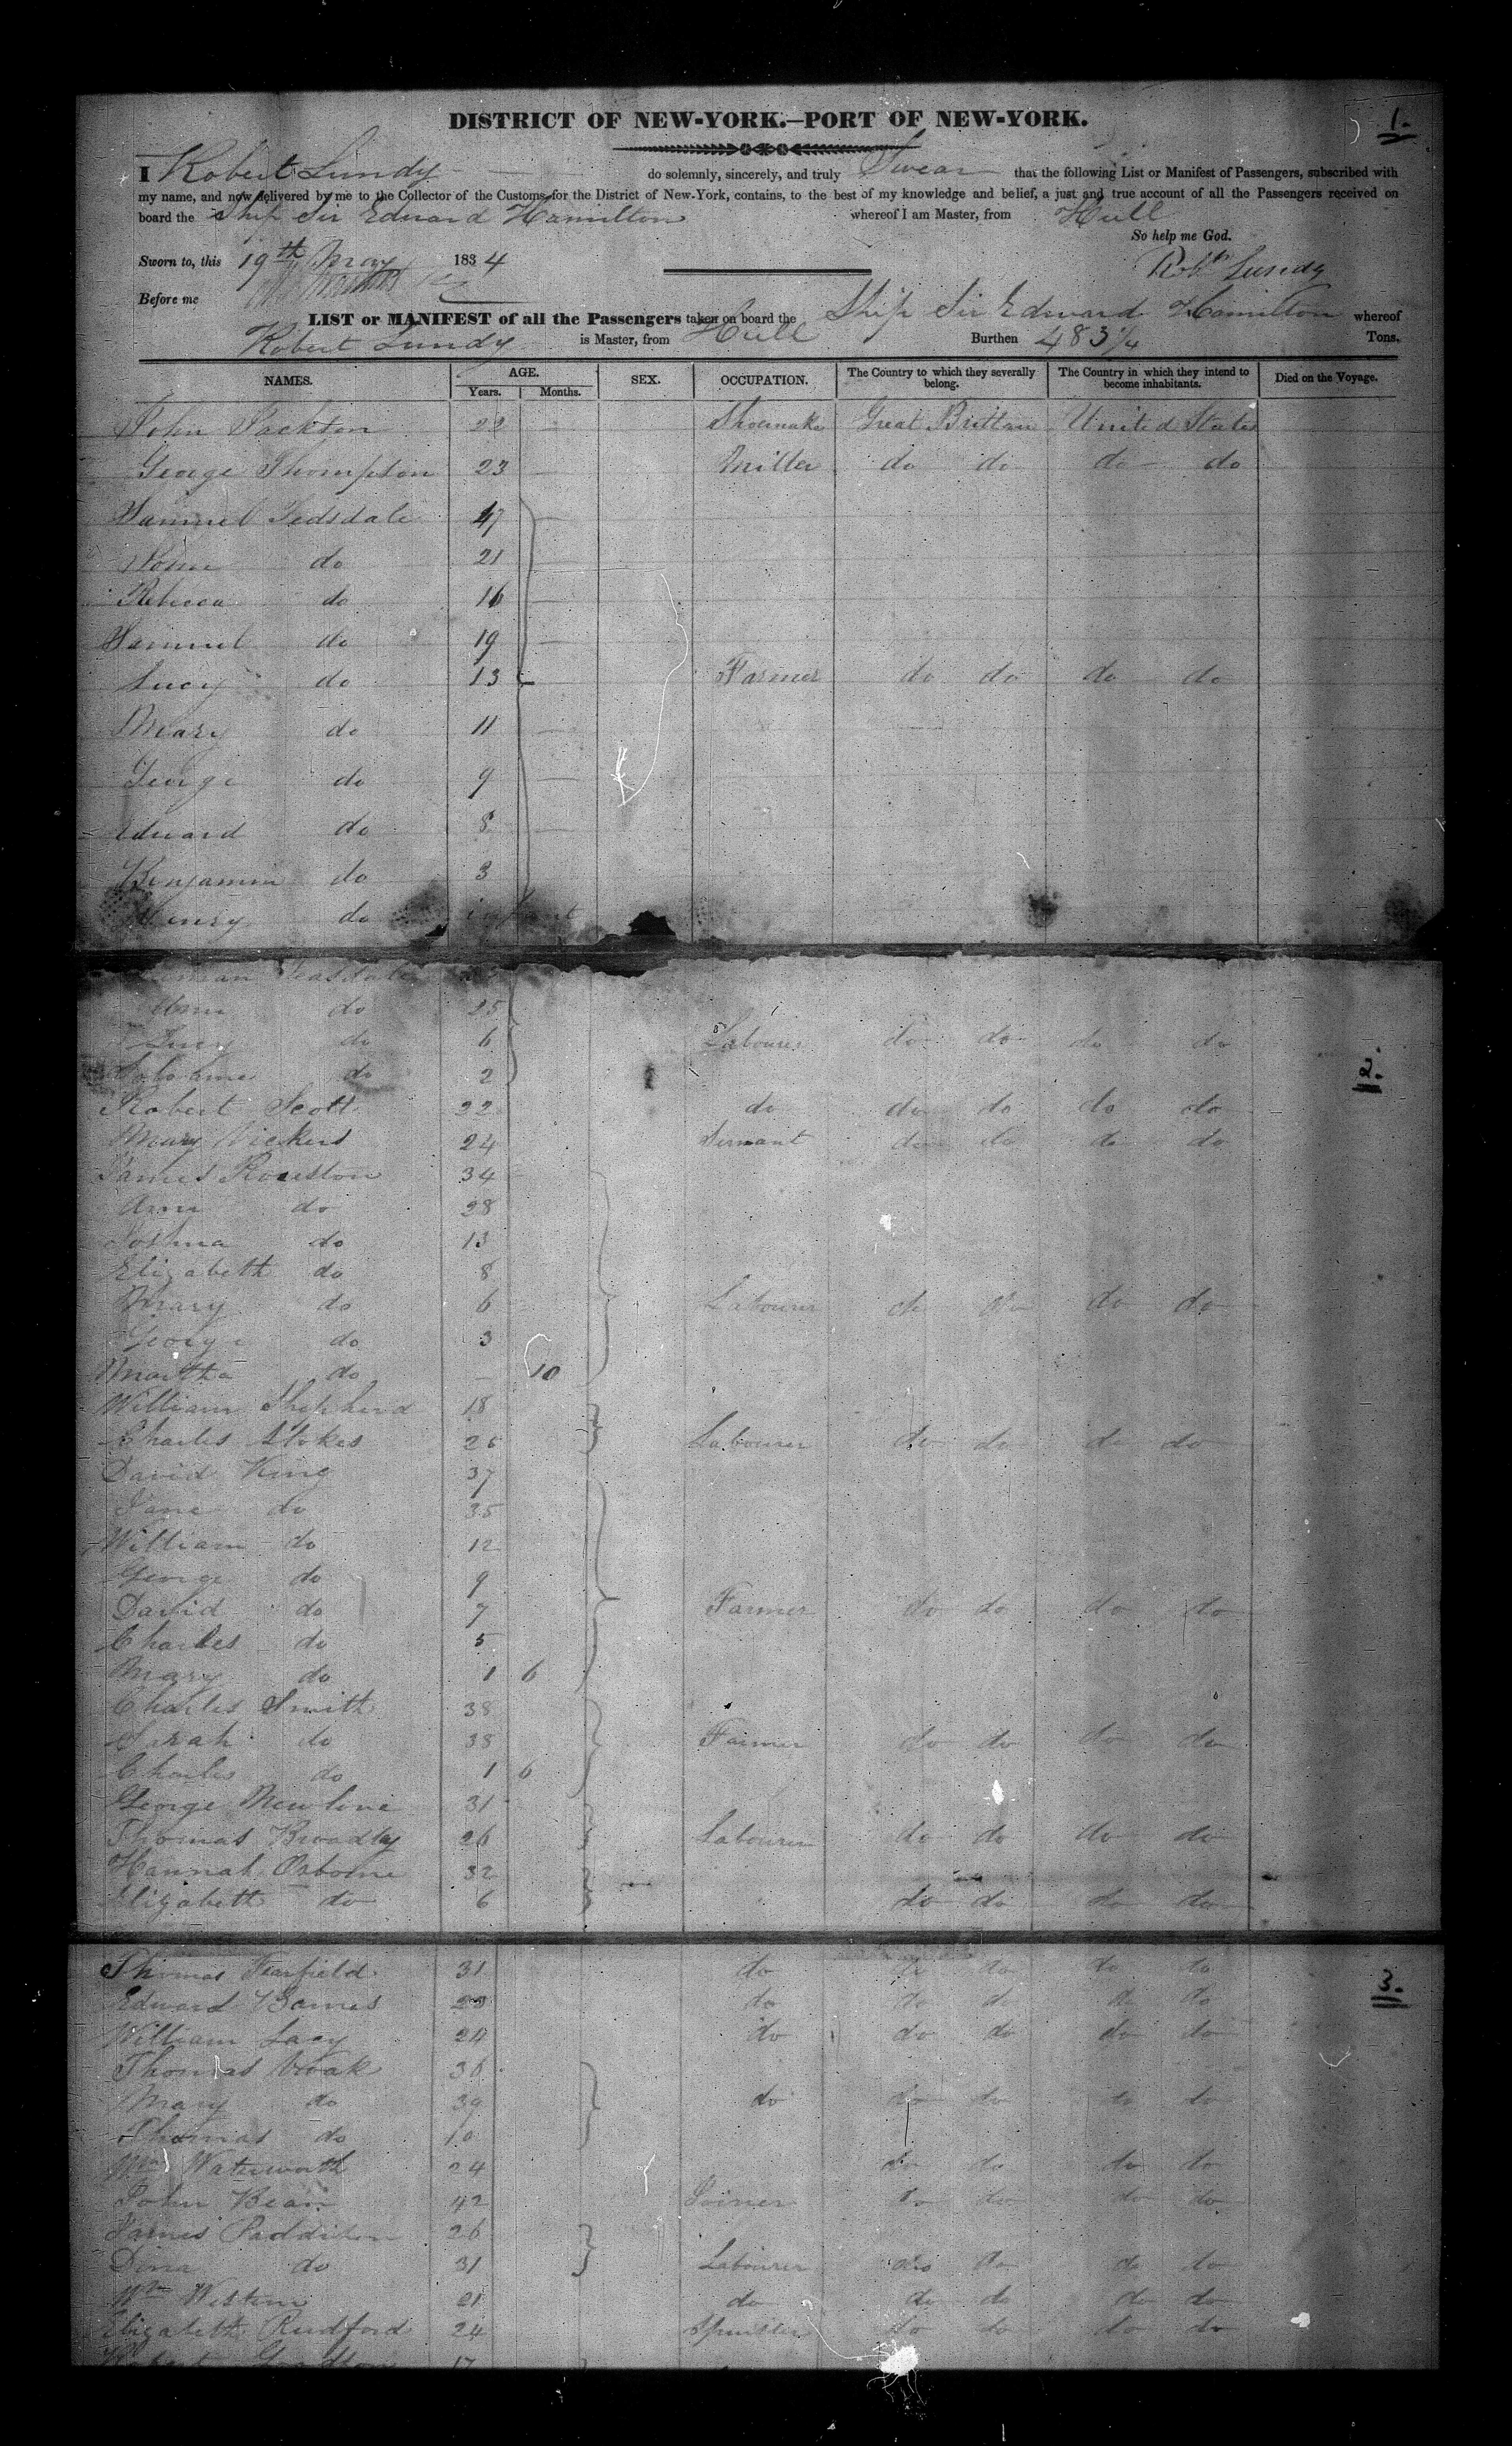 DISTRICT OF NEW-YORK.—PORT OF NEW-YORK.
1.
I Robert Lundy do solemnly, sincerely, and truly Swear that the following List or Manifest of Passengers, subscribed with
my name, and now delivered by me to the Collector of the Customs for the District of New-York, contains, to the best of my knowledge and belief, a just and true account of all the Passengers received on
board the Ship Sir Edward Hamilton whereof I am Master, from Hull
So help me God.
Sworn to, this 19th May 1834
Robt Lundy
Before me
LIST or MANIFEST of all the Passengers taken on board the Ship Sir Edward Hamilton whereof
Robert Lundy is Master, from Hull Burthen 483 1/4 Tons.
NAMES. AGE. SEX. OCCUPATION. The Country to which they severally belong. The Country in which they intend to become inhabitants. Died on the Voyage.
Years. Months.
John Jackson Shoemaker Great Brittain United States
George Thompson 23 Miller do do do do
Samuel Tedsdale 47
John do 21
Rebecca do 16
Samuel do 19
Lucy do 13 Farmer do do do do
Mary do 11
George do 9
Edward do 8
Benjamin do 3
Henry do infant
Teasdale
Ann do 25
Lucy do 6 Labourer do do do do
do 2
2.
Robert Scott 22 do do do do do
Mary Vickers 24 Servant do do do do
James Rouston 34
Ann do 28
Joshua do 13
Elizabeth do 8
Mary do 6 Labourer do do do do
George do 3
Martha do 10
William Shepherd 18
Charles Stokes 26 Labourer do do do do
David King 37
Jane do 35
William do 12
George do 9
David do 7 Farmer do do do do
Charles do 5
Mary do 1 6
Charles Smith 38
Sarah do 38 Farmer do do do do
Charles do 1 6
George Newlove 31
Thomas Broadley 26 Labourer do do do do
Hannah Osborne 32
Elizabeth do 6 do do do do
Thomas Fearfield 31 do do do do do
3.
Edward Barnes do do do do do
William Lacy 24 do do do do do
Thomas Voak 36
Mary do 39 do do do do do
Thomas do 10
Wm Waterworth 24 do do do do
John Bean 42 Joiner do do do do
James Paddison 26
Dina do 31 Labourer do do do do
Wm 21 do do do do do
Elizabeth Rudford 24 Spinster do do do do
17